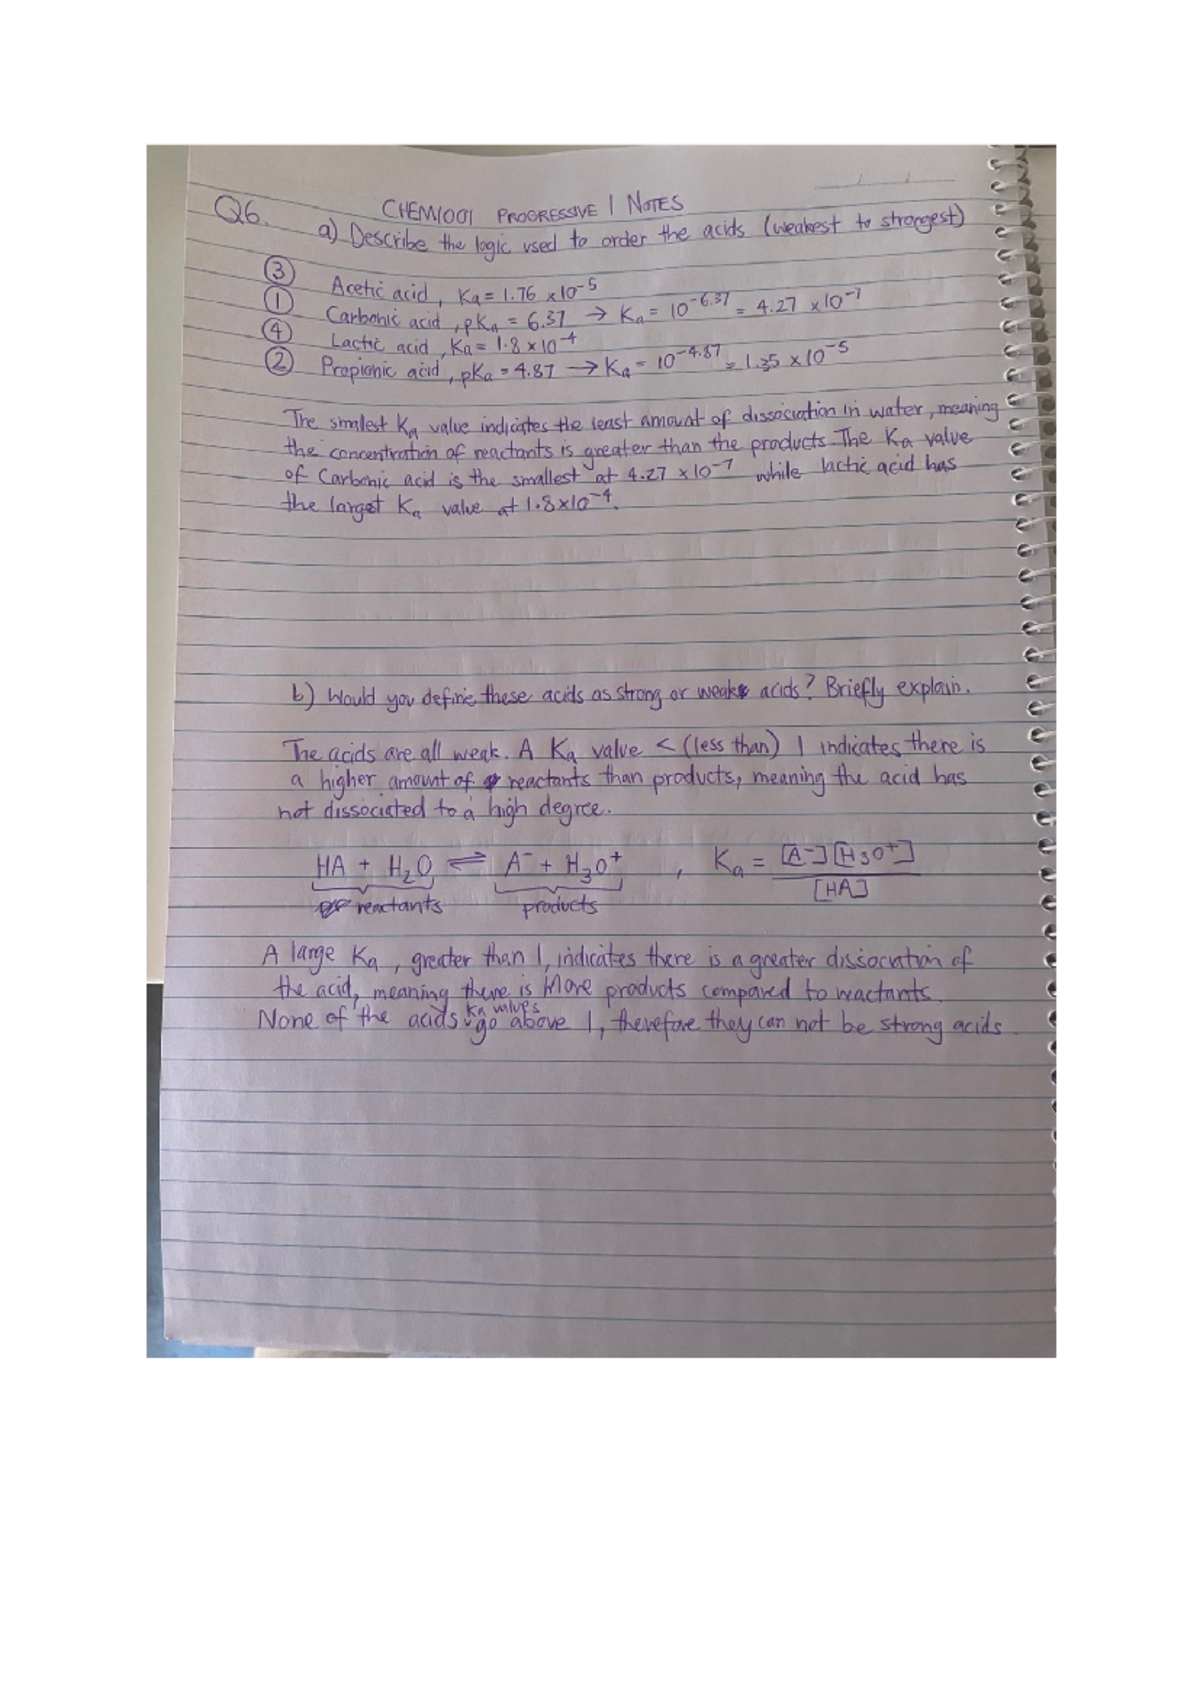 CHEM1001 PROGRESSIVE 1 NOTES
Q6. a) Describe the logic used to order the acids (weakest to strongest)
③ Acetic acid, Ka = 1.76 x10⁻⁵
① Carbonic acid, pKa = 6.37 → Ka = 10⁻⁶·³⁷ = 4.27 x10⁻⁷
④ Lactic acid, Ka = 1.8 x 10⁻⁴
② Propionic acid, pKa = 4.87 → Ka = 10⁻⁴·⁸⁷ = 1.35 x 10⁻⁵
The smallest Ka value indicates the least amount of dissociation in water, meaning
the concentration of reactants is greater than the products. The Ka value
of Carbonic acid is the smallest at 4.27 x10⁻⁷ while lactic acid has
the largest Ka value at 1.8x10⁻⁴.
b) Would you define these acids as strong or weak acids? Briefly explain.
The acids are all weak. A Ka value < (less than) 1 indicates there is
a higher amount of reactants than products, meaning the acid has
not dissociated to a high degree.
HA + H₂O ⇌ A⁻ + H₃O⁺ , Ka = [A⁻][H₃O⁺]
[HA]
reactants products
A large Ka, greater than 1, indicates there is a greater dissociation of
the acid, meaning there is more products compared to reactants.
None of the acids Ka values go above 1, therefore they can not be strong acids.